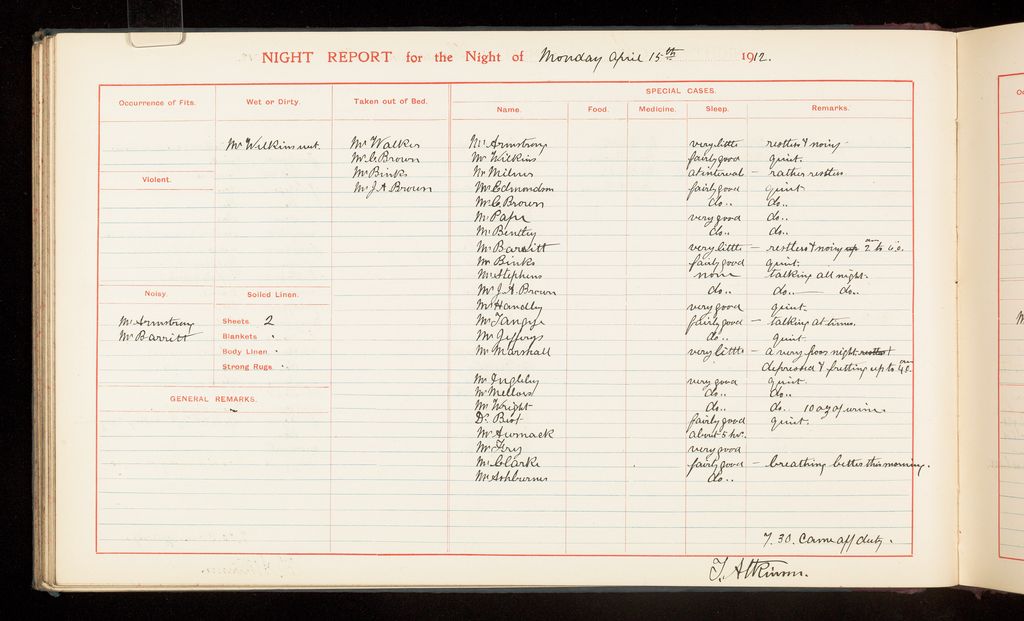 NIGHT REPORT for the Night of Monday April 15th 1912.
Occurrence of Fits.
Wet or Dirty.
Mr Wilkins wet.
Taken out of Bed.
Mr Walker
Mr C Brown
Mr Binks
Mr J A Brown
Violent.
Noisy.
Mr Armstrong
Mr Barritt
Soiled Linen.
Sheets 2
Blankets "
Body Linen "
Strong Rugs "
GENERAL REMARKS.
~
SPECIAL CASES.
Name. Food. Medicine. Sleep. Remarks.
Mr Armstrong very little restless & noisy
Mr Wilkins fairly good quiet.
Mr Milnes at interval – rather restless
Mr Edmondson fairly good quiet
Mr C. Brown do.. do..
Mr Pape very good do..
Mr Bentley do.. do..
Mr Barritt very little – restless & noisy up 2 am to 6.0.
Mr Binks fairly good quiet.
Mr Stephens none talking all night.
Mr J. A. Brown do.. do.. — do..
Mr Handley very good quiet.
Mr Tangye fairly good – talking at times.
Mr Jefferys do.. quiet
Mr Marshall very little – a very poor night. restless &
depressed & fretting up to 4 am 0.
Mr Ingleby very good quiet.
Mr Mellors do.. do..
Mr Wright do.. do.. 10 oz of urine.
Dr Biot fairly good quiet.
Mr Awmack about 5 hr.
Mr Fry very good
Mr Clarke fairly good – breathing better this morning.
Mr Ashburner do..
7.30. Came off duty.
T. Atkinson.